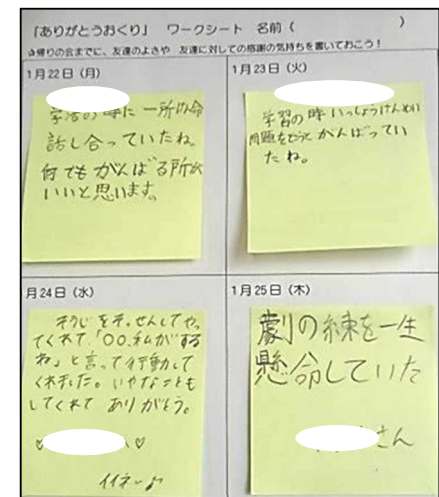 「ありがとうおくり」 ワークシート 名前( )
☆帰りの会までに、友達のよさや 友達に対しての感謝の気持ちを書いておこう！
1月22日(月)
学活の時に一所けん命
話し合っていたね。
何でもがんばる所が
いいと思います。
1月23日(火)
学習の時いっしょうけんめい
問題をとこうとがんばってい
たね。
月24日(水)
そうじをそっせんしてやっ
てくれて「○○、私がする
ね」と言って行動して
くれました。いやなことも
してくれて ありがとう。
♡ ♡
イイネー♪
1月25日(木)
劇の練を一生
懸命していた
さん